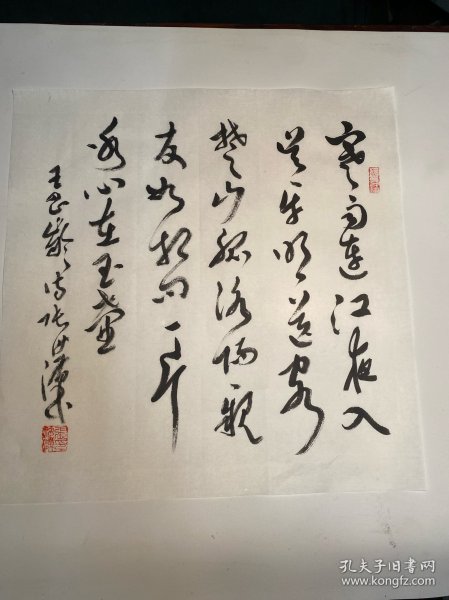 寒雨连江夜入
吴平明送客
楚山孤洛阳亲
友如相问一片
冰心在玉壶
王昌龄诗张
孔夫子旧书网
www.kongfz.com